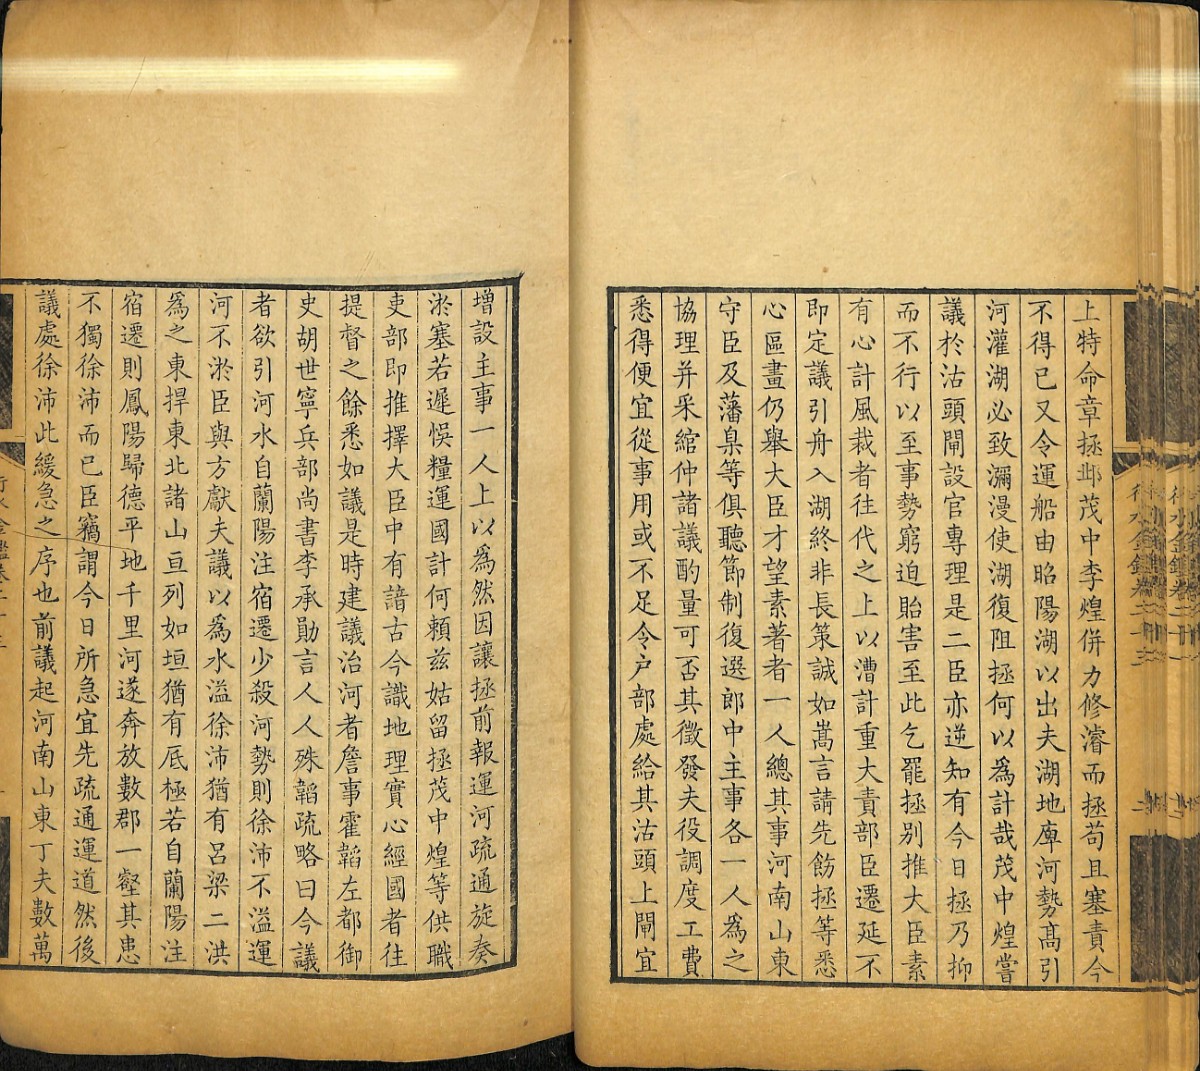 上特命章拯邺茂中李煌併力修濬而拯苟且塞責今
不得已又令運船由昭陽湖以出夫湖地庳河勢髙引
河灌湖必致瀰漫使湖復阻拯何以爲計哉茂中煌嘗
議於沽頭閘設官專理是二臣亦逆知有今日拯乃抑
而不行以至事勢窮迫貽害至此乞罷拯别推大臣素
有心計風裁者往代之上以漕計重大責部臣遷延不
即定議引舟入湖終非長策誠如嵩言請先飭拯等悉
心區畫仍舉大臣才望素著者一人總其事河南山東
守臣及藩臬等俱聽節制復選郎中主事各一人爲之
協理并采綰仲諸議酌量可否其徵發夫役調度工費
悉得便宜從事用或不足令户部處給其沽頭上閘宜
増設主事一人上以爲然因讓拯前報運河疏通旋奏
淤塞若遲悞糧運國計何頼兹姑留拯茂中煌等供職
吏部即推擇大臣中有諳古今識地理實心經國者往
提督之餘悉如議是時建議治河者詹事霍韜左都御
史胡世寧兵部尚書李承勛言人人殊韜疏略曰今議
者欲引河水自蘭陽注宿遷少殺河勢則徐沛不溢運
河不淤臣與方獻夫議以爲水溢徐沛猶有吕梁二洪
爲之東捍東北諸山亘列如垣猶有底極若自蘭陽注
宿遷則鳳陽歸德平地千里河遂奔放數郡一壑其患
不獨徐沛而已臣竊謂今日所急宜先疏通運道然後
議處徐沛此緩急之序也前議起河南山東丁夫數萬